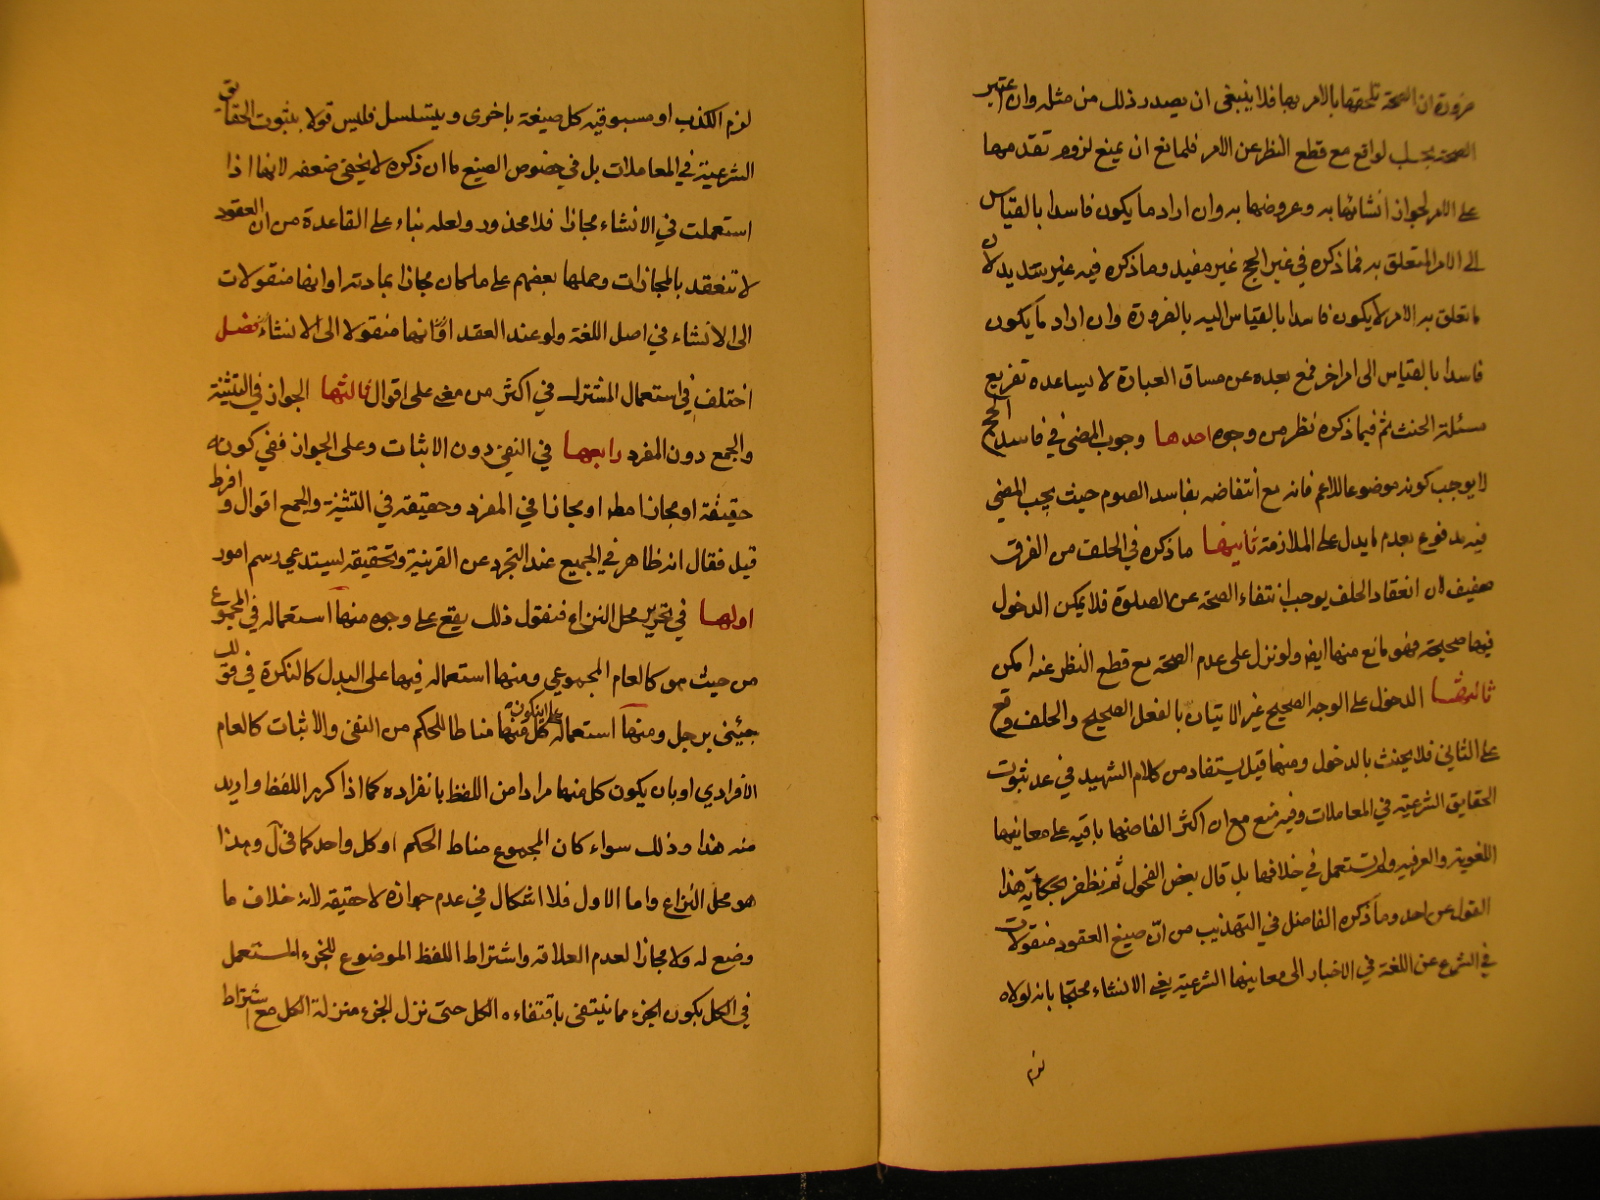 ضرورة ان الصحة تلحقها بالامر بها فلا ينبغي ان يصدر ذلك من مثله وان اعتبر
الصحة بحسب الواقع مع قطع النظر عن الامر فلمانع ان يمنع لزوم تقدمها
على الامر لجواز انشائها به وعروضها به وان اراد ما يكون فاسدا بالقياس
الى الامر المتعلق به فما ذكره في غير الحج غير مفيد وما ذكره فيه غير سديد لان
ما تعلق به الامر لا يكون فاسدا بالقياس اليه بالضرورة وان اراد ما يكون
فاسدا بالقياس الى امر اخر فمع بعده عن مساق العبارة لا يساعده تفريع
مسئلة الحنث ثم فيما ذكره نظر من وجوه احدها وجوب المضي في فاسد الحج
لا يوجب كونه موضوعا للاعم فانه مع انتقاضه بفاسد الصوم حيث يجب المضي
فيه مدفوع بعدم ما يدل على الملازمة ثانيها ما ذكره في الحلف من الفرق
ضعيف لان انعقاد الحلف يوجب انتفاء الصحة عن الصلوة فلا يمكن الدخول
فيها صحيحة فهو مانع منها ايض ولو نزل على عدم الصحة مع قطع النظر عنه امكن
ثالثها الدخول على الوجه الصحيح غير الاتيان بالفعل الصحيح والحلف وقع
على الثاني فلا يحنث بالدخول ومنها قيل يستفاد من كلام الشهيد في عد ثبوت
الحقايق الشرعية في المعاملات وفيه منع مع ان اكثر الفاضها باقية على معانيها
اللغوية والعرفية ولم تستعمل في خلافها بل قال بعض الفحول لم نظفر بحكاية هذا
القول عن احد وما ذكره الفاضل في التهذيب من ان صيغ العقود منقولات
في الشرع عن اللغة في الاخبار الى معانيها الشرعية يعني الانشاء محتجا بانه لولاه
لزم
لزم الكذب او مسبوقية كل صيغة باخرى ويتسلسل فليس قولا بثبوت الحقايق
الشرعية في المعاملات بل في خصوص الصيغ مع ان ما ذكره لا يخفى ضعفه لانها اذا
استعملت في الانشاء مجازا فلا محذور ولعله بناء على القاعدة من ان العقود
لا تنعقد بالمجازات وحملها بعضهم على ما كان مجازا بمادته او انها منقولات
الى الانشاء في اصل اللغة ولو عند العقد او انها منقولا الى الانشاء فصل
اختلف في استعمال المشترك في اكثر من معنى على اقوال ثالثها الجواز في التثنية
والجمع دون المفرد رابعها في النفي دون الاثبات وعلى الجواز ففي كونه
حقيقة او مجازا مط او مجازا في المفرد وحقيقة في التثنية والجمع اقوال و افرط
قيل فقال انه ظاهر في الجميع عند التجرد عن القرينة وتحقيقه يستدعي رسم امور
اولها في تحرير محل النزاع فنقول ذلك يقع على وجوه منها استعماله في المجموع
من حيث هو كالعام المجموعي ومنها استعماله فيها على البدل كالنكرة في قولك
جيئني برجل ومنها استعماله على ان يكون كل منها مناطا للحكم من النفي والاثبات كالعام
الافرادي او بان يكون كل منها مرادا من اللفظ بانفراده كما اذا كرر اللفظ واريد
منه هذا وذلك سواء كان المجموع مناط الحكم او كل واحد كما في ل وهذا
هو محل النزاع واما الاول فلا اشكال في عدم جوازه لا حقيقة لانه خلاف ما
وضع له ولا مجازا لعدم العلاقة واشتراط اللفظ الموضوع للجزء المستعمل
في الكل بكون الجزء مما ينتفي بانتفاءه الكل حتى نزل الجزء منزلة الكل مع اشتراط